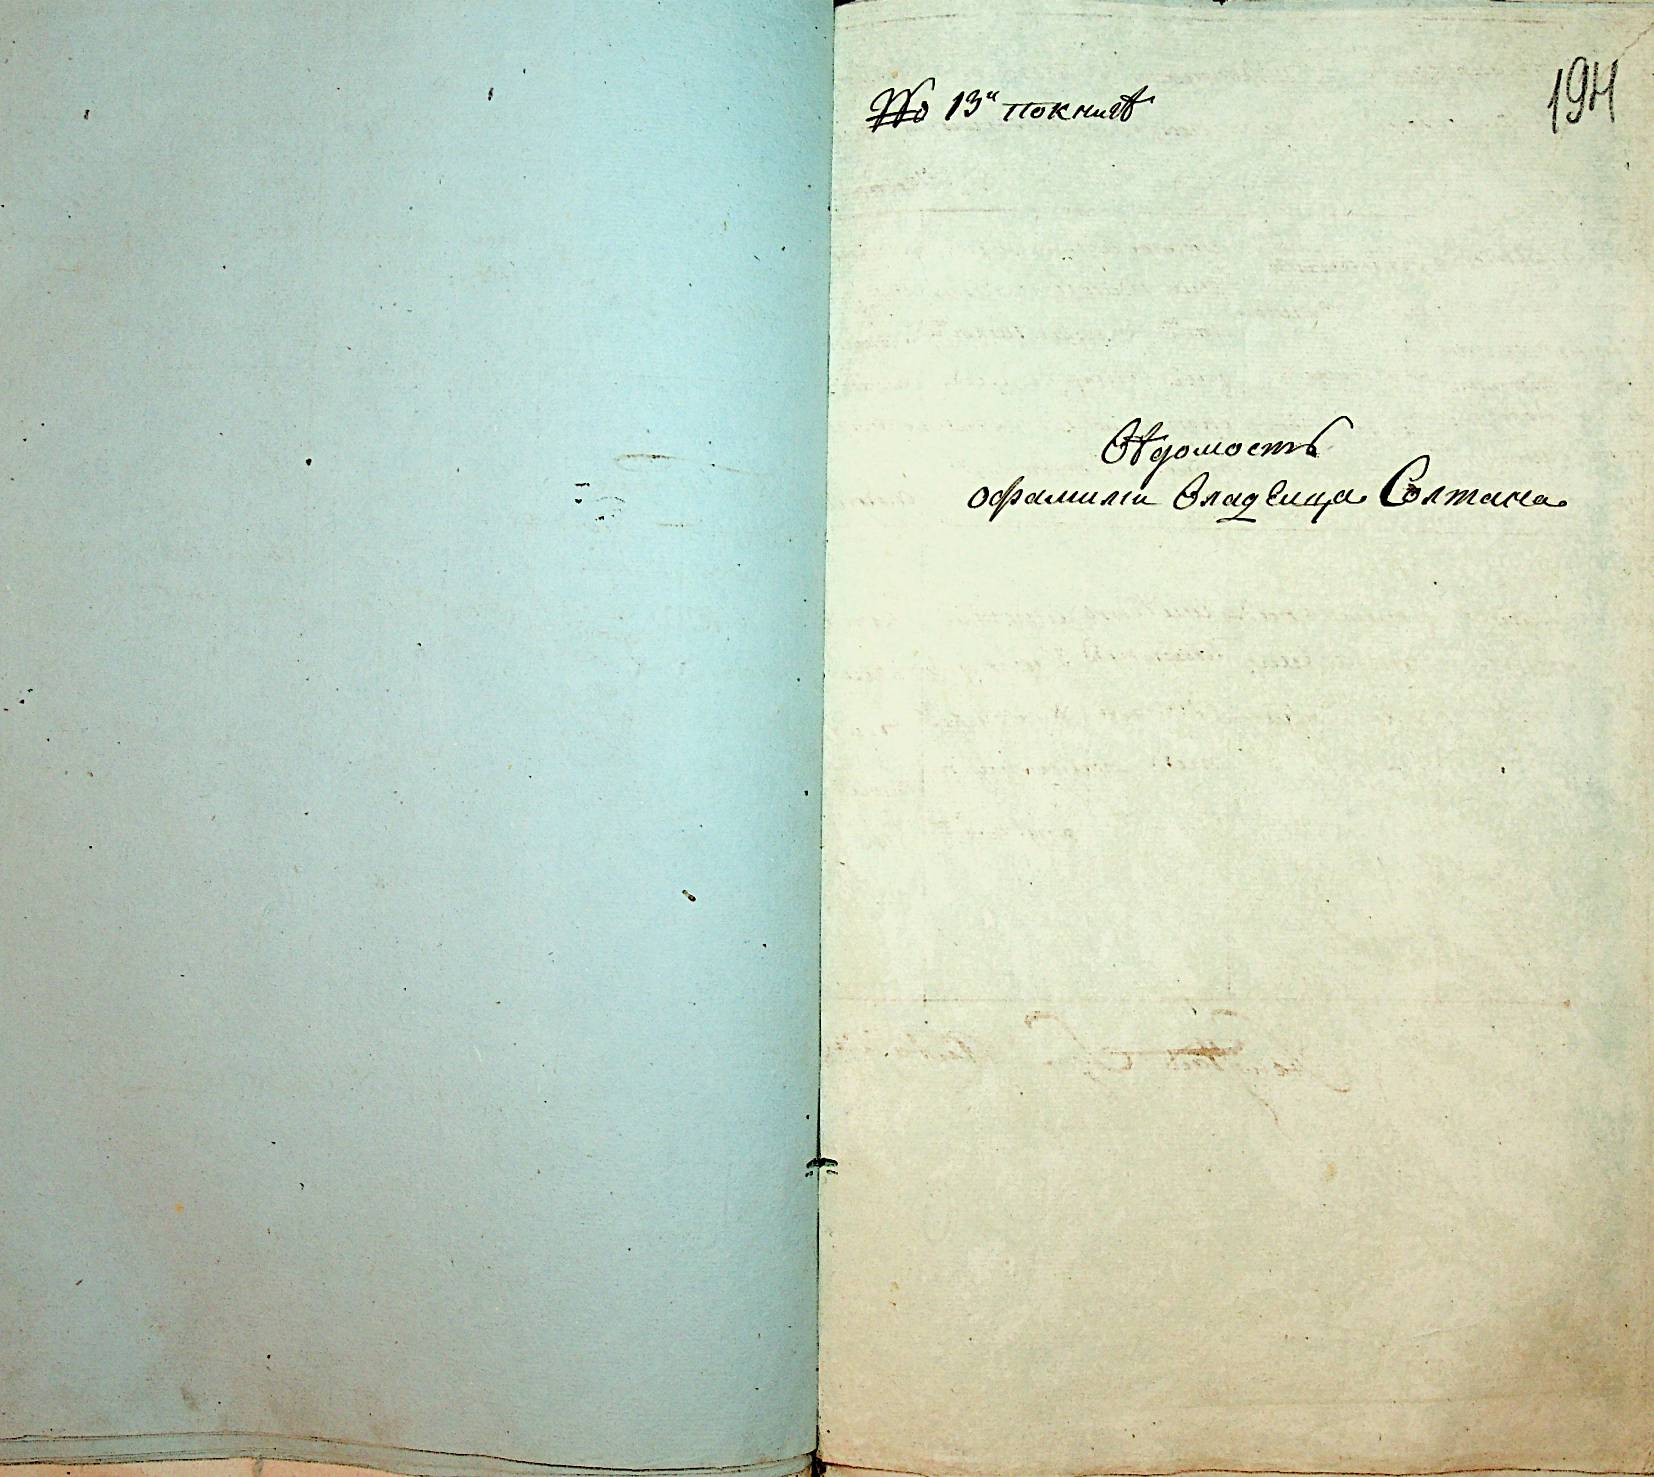 № 13й покнигѣ
194
Вѣдомость
офамилии владелца Солтана